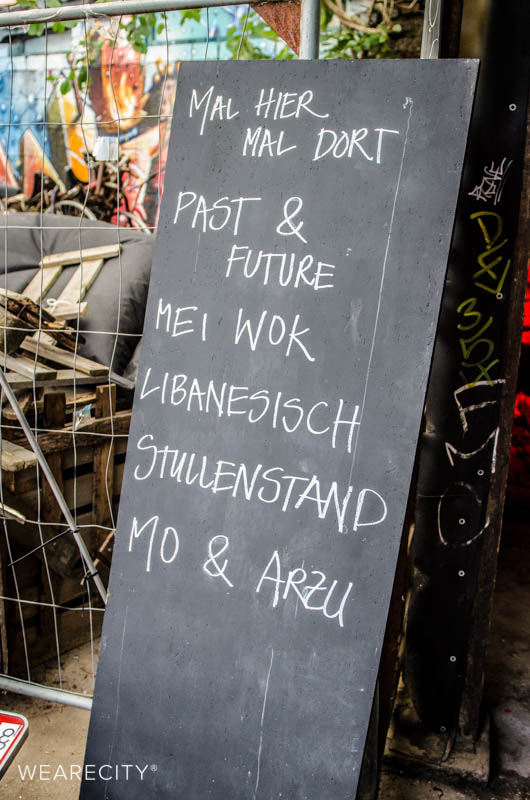 MAL HIER
MAL DORT
PAST &
FUTURE
MEI WOK
LIBANESISCH
STULLENSTAND
MO & ARZU
WEARECITY®